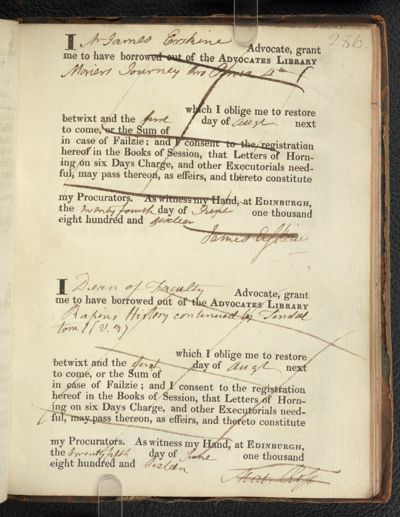 286
I Mr James Erskine Advocate, grant
me to have borrowed out of the ADVOCATES LIBRARY
Moriers Journey thro Persia 4to
which I oblige me to restore
betwixt and the first day of Augt next
to come, or the Sum of
in case of Failzie; and I consent to the registration
hereof in the Books of Session, that Letters of Horn-
ing on six Days Charge, and other Executorials need-
ful, may pass thereon, as effeirs, and thereto constitute
my Procurators. As witness my Hand, at EDINBURGH,
the twenty fourth day of June one thousand
eight hundred and sixteen
James Erskine
I Dean of Faculty Advocate, grant
me to have borrowed out of the ADVOCATES LIBRARY
Rapins History continued by Tindal
tom (V. 9)
which I oblige me to restore
betwixt and the first day of Augt next
to come, or the Sum of
in case of Failzie; and I consent to the registration
hereof in the Books of Session, that Letters of Horn-
ing on six Days Charge, and other Executorials need-
ful, may pass thereon, as effeirs, and thereto constitute
my Procurators. As witness my Hand, at EDINBURGH,
the twenty fifth day of June one thousand
eight hundred and sixteen